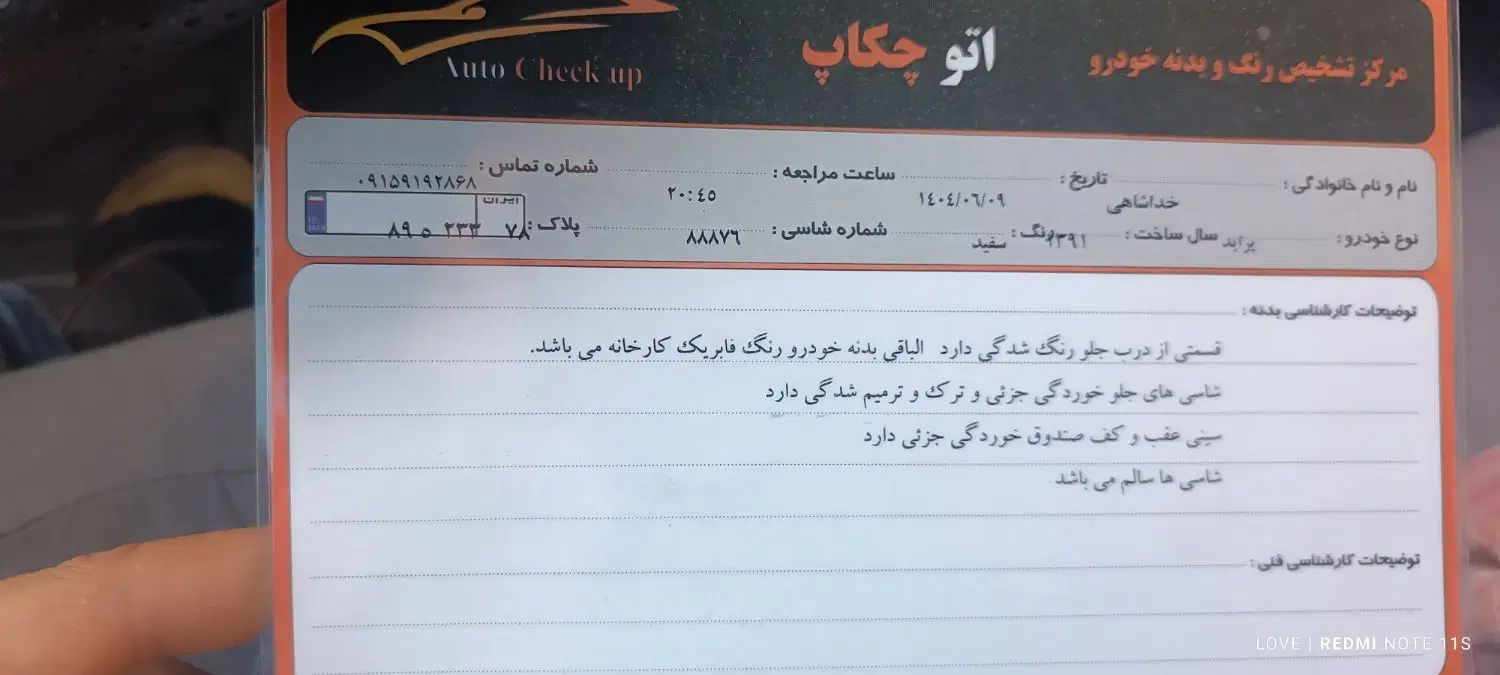 مرکز تشخیص رنگ و بدنه خودرو
اتو چکاپ
Auto Check up
نام و نام خانوادگی : خداشاهی تاریخ : ۱۴۰۴/۰۶/۰۹ ساعت مراجعه : ۲۰:٤٥ شماره تماس : ۰۹۱۵۹۱۹۲۸۶۸
نوع خودرو : پراید سال ساخت : ۱۳۹۱ رنگ : سفید شماره شاسی : ۸۸۸۷٦ پلاک : ایران ۷۸ ۲۳۳ ۸۹۵
توضیحات کارشناسی بدنه :
قسمتی از درب جلو رنگ شدگی دارد الباقی بدنه خودرو رنگ فابریک کارخانه می باشد.
شاسی های جلو خوردگی جزئی و ترک و ترمیم شدگی دارد
سینی عقب و کف صندوق خوردگی جزئی دارد
شاسی ها سالم می باشد
توضیحات کارشناسی فنی :
LOVE | REDMI NOTE 11S